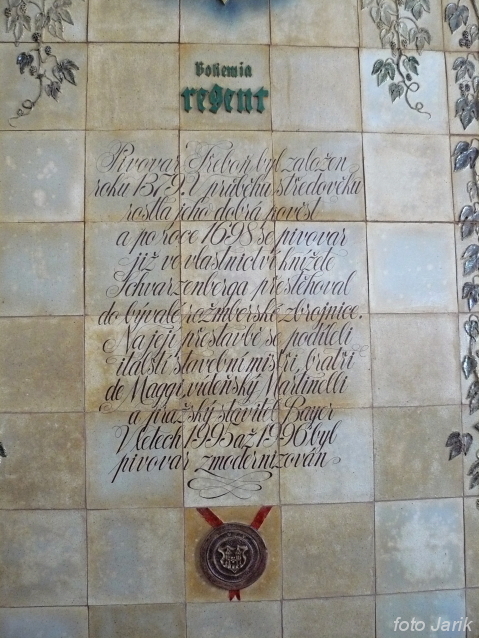 bohemia
regent
Pivovar Třeboň byl založen
roku 1379. V průběhu středověku
rostla jeho dobrá pověst
a po roce 1698 se pivovar
již ve vlastnictví knížete
Schvarzenberga přestěhoval
do bývalé rožmberské zbrojnice.
Na její přestavbě se podíleli
italští stavební mistři, bratři
de Maggi, vídeňský Martinelli
a pražský stavitel Bayer
V letech 1995 až 1996 byl
pivovar zmodernizován
foto Jarik